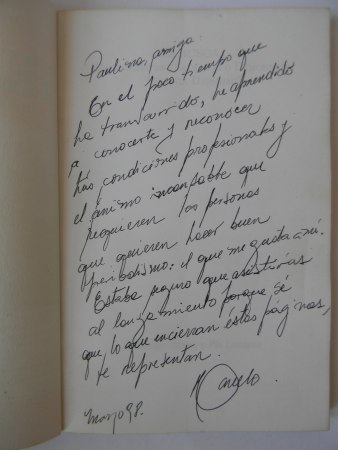 Paulina, amiga:
En el poco tiempo que
ha transcurrido, he aprendido
a conocerte y reconocer
tus condiciones profesionales y
el ánimo incansable que
requieren las personas
que quieren hacer buen
periodismo: el que me gusta a mí.
Estaba seguro que asistirías
al lanzamiento porque sé
que, lo que encierran éstas páginas,
te representan.
Marcelo.
mayo 98.